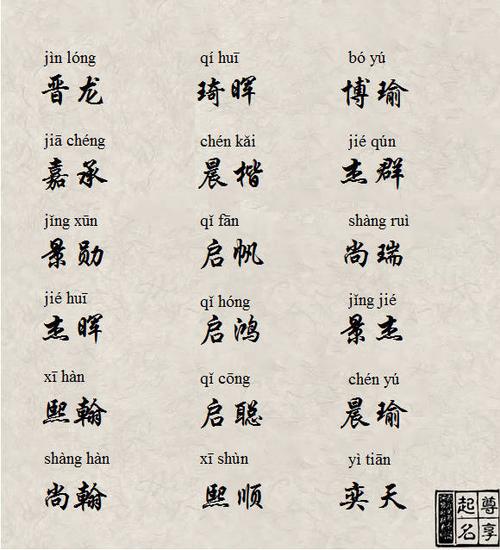 jìn lóng qí huī bó yú
晋龙 琦晖 博瑜
jiā chéng chén kǎi jié qún
嘉承 晨楷 杰群
jǐng xūn qǐ fān shàng ruì
景勋 启帆 尚瑞
jié huī qǐ hóng jǐng jié
杰晖 启鸿 景杰
xī hàn qǐ cōng chén yú
熙翰 启聪 晨瑜
shàng hàn xī shùn yì tiān
尚翰 熙顺 奕天
尊享
起名